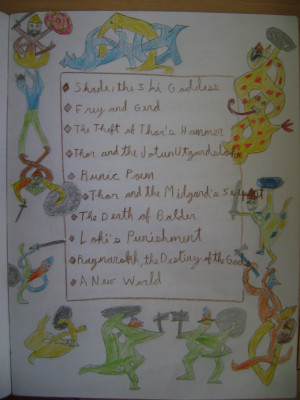 Shade, the Ski Goddess
Frey and Gerd
The Theft of Thor's Hammer
Thor and the Jotun Utgardsloki
Runic Poem
Thor and the Midgard's Serpent
The Death of Balder
Loki's Punishment
Ragnarokh, the Destiny of the Gods
A New World